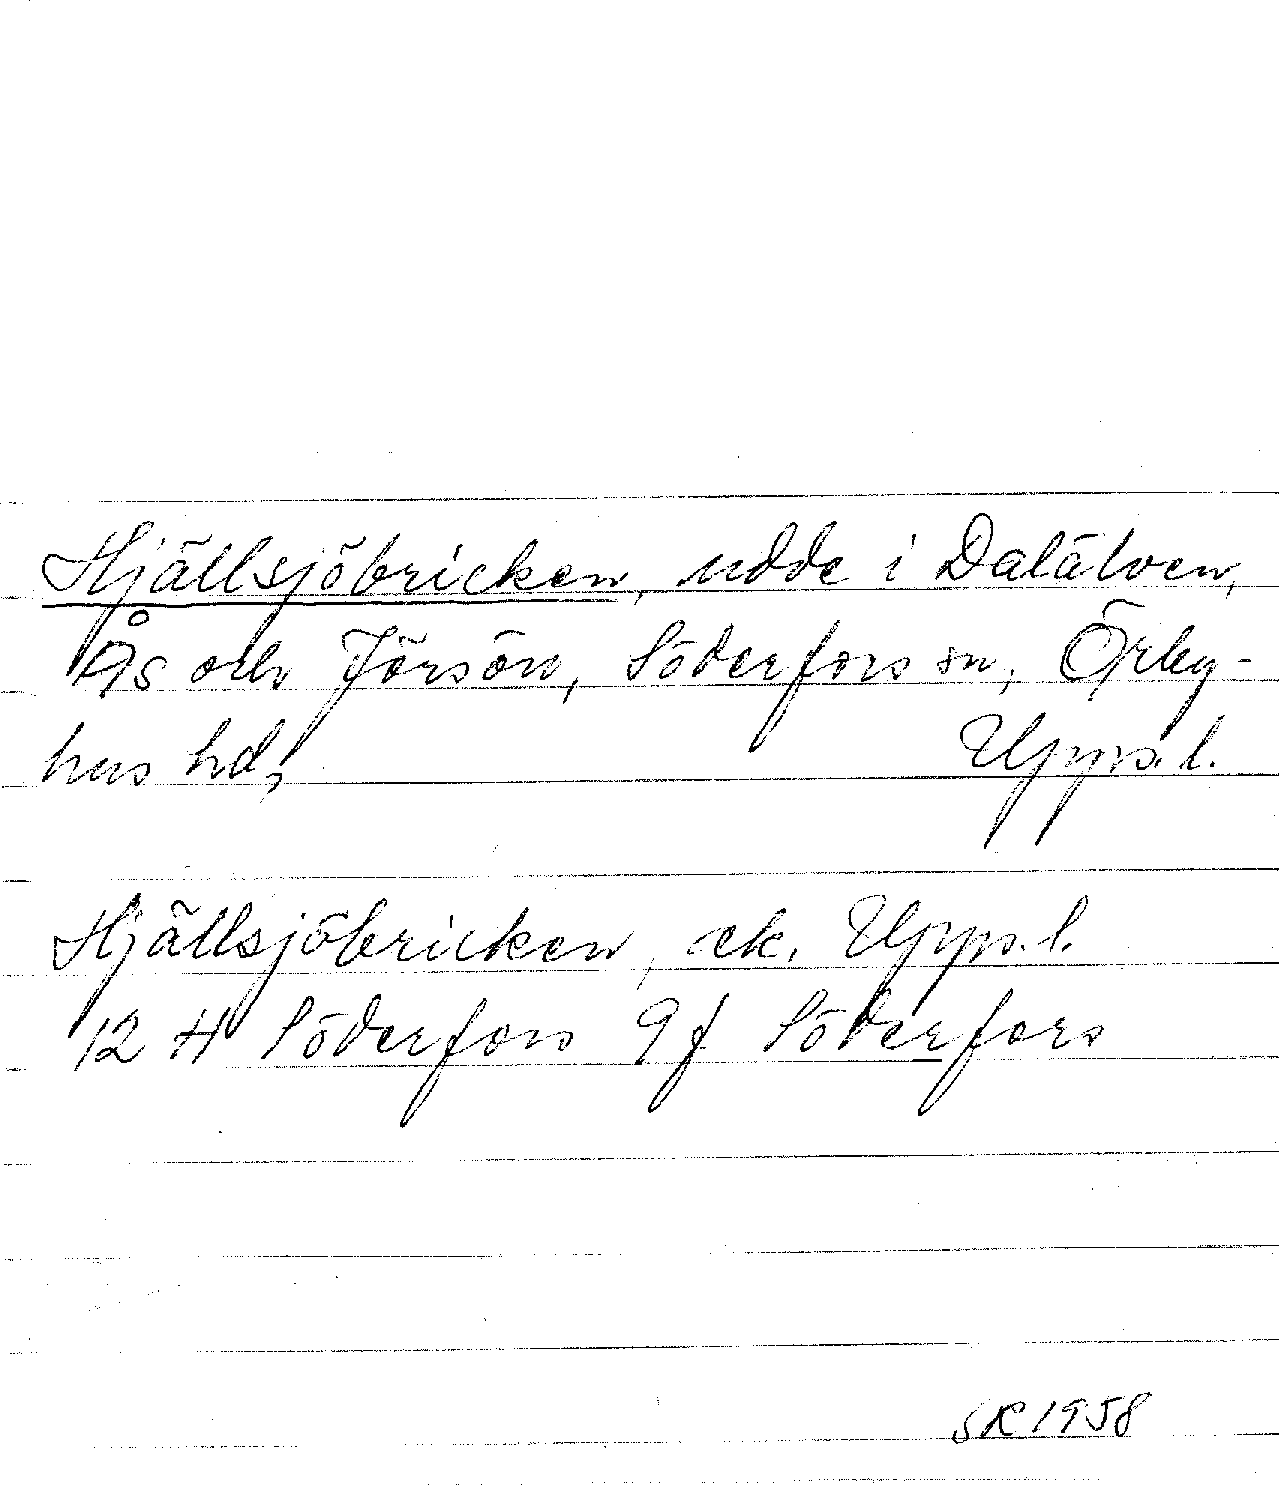 Hjällsjöbricken, udde i Dalälven,
Ås och Jörsön, Söderfors sn, Örby-
hus hd, Upps. l.
Hjällsjöbricken, ek. Upps. l.
12 H Söderfors 9f Söderfors
SK 1958